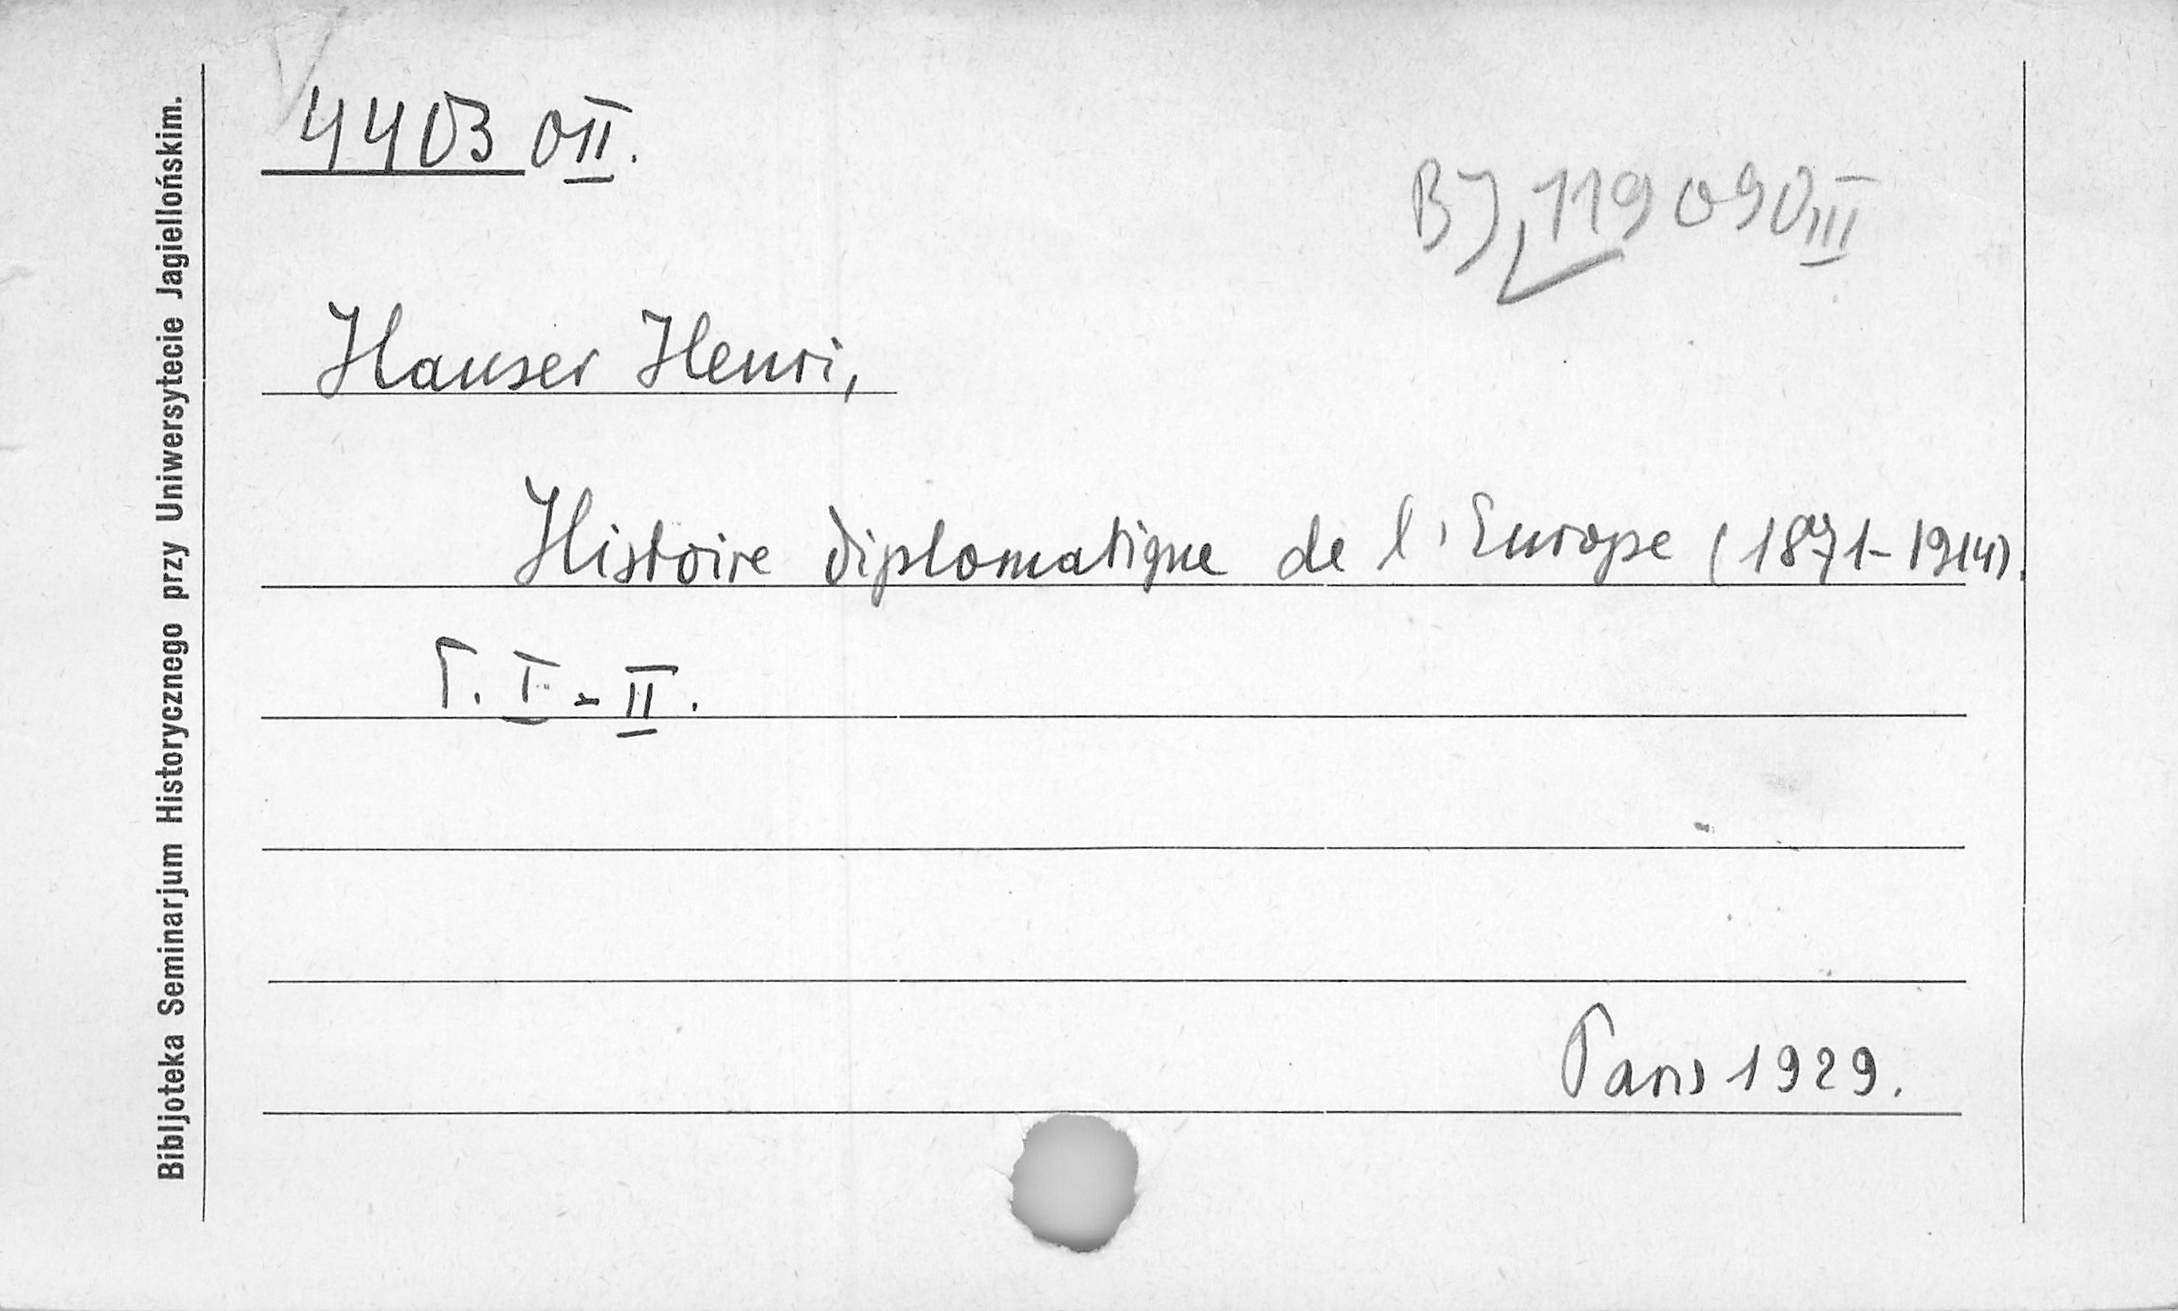 Bibljoteka Seminarjum Historycznego przy Uniwersytecie Jagiellońskim.
4403 OII.
BJ, 119090 III
Hauser Henri,
Histoire diplomatique de l'Europe (1871-1914).
T. I-II.
Paris 1929.